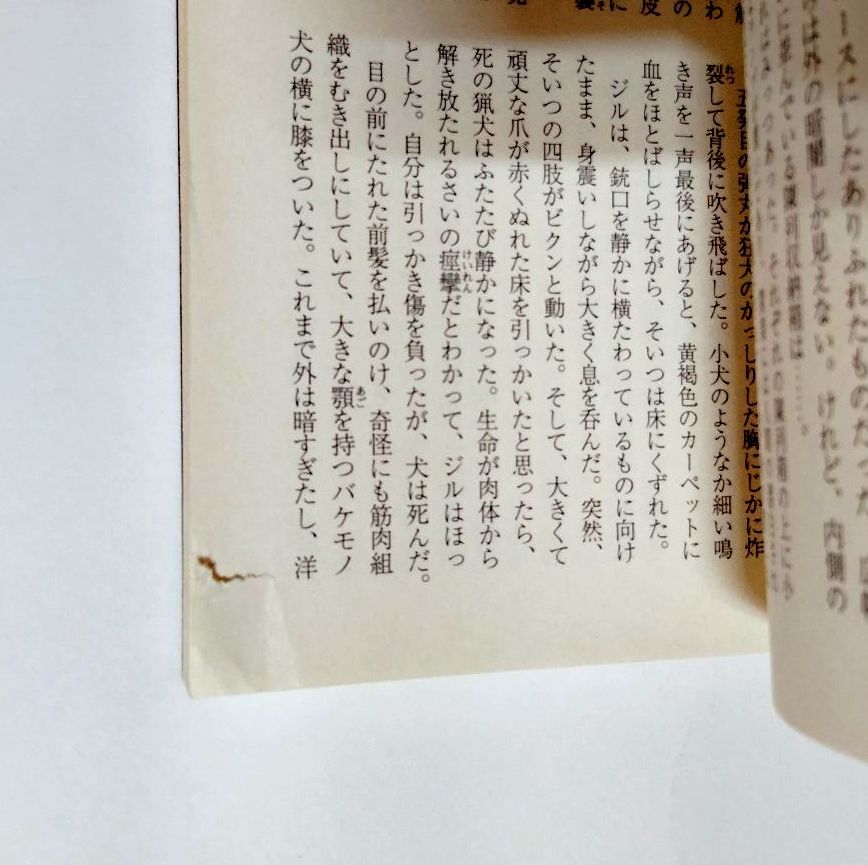 ースにしたありふれたものだった
は外の暗闇しか見えない。けれど、内側の
に並んでいる陳列収納箱は……。
わ
の
皮
に
五発目の弾丸が狂犬のがっしりした胸にじかに炸
裂して背後に吹き飛ばした。小犬のようなか細い鳴
き声を一声最後にあげると、黄褐色のカーペットに
血をほとばしらせながら、そいつは床にくずれた。
ジルは、銃口を静かに横たわっているものに向け
たまま、身震いしながら大きく息を呑んだ。突然、
そいつの四肢がビクンと動いた。そして、大きくて
頑丈な爪が赤くぬれた床を引っかいたと思ったら、
死の猟犬はふたたび静かになった。生命が肉体から
解き放たれるさいの痙攣だとわかって、ジルはほっ
とした。自分は引っかき傷を負ったが、犬は死んだ。
目の前にたれた前髪を払いのけ、奇怪にも筋肉組
織をむき出しにしていて、大きな顎を持つバケモノ
犬の横に膝をついた。これまで外は暗すぎたし、洋